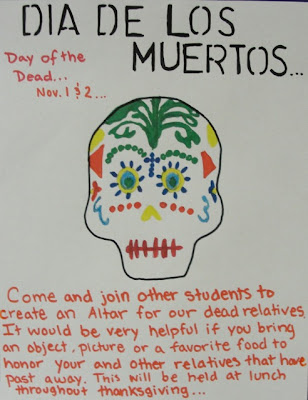 DIA DE LOS
MUERTOS...
Day of the
Dead...
Nov. 1 & 2...
Come and join other students to
create an Altar for our dead relatives.
It would be very helpful if you bring
an object, picture or a favorite food to
honor your and other relatives that have
past away. This will be held at lunch
throughout thanksgiving...